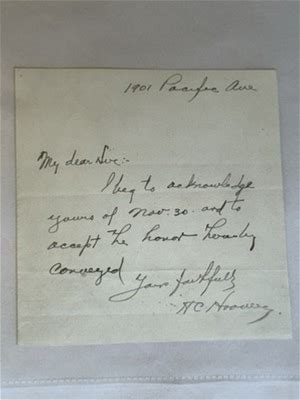 1901 Pacific Ave
My dear Sir:-
I beg to acknowledge
yours of Nov. 30 and to
accept the honor thereby
conveyed
Yours faithfully
H C Hoover.